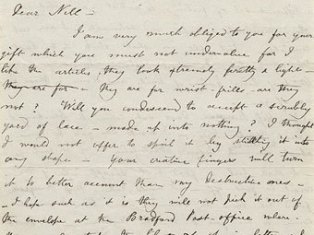 Dear Nell –
I am very much obliged to you for your
gift which you must not undervalue for I
like the articles, they look extremely pretty & light –
they are for – They are for wrist frills are they
not? Will you condescend to accept a scrubby
yard of lace – made up into nothing? I thought
I would not offer to spoil it by stitching it into
any shape – Your creative fingers will turn
it to better account than my destructive ones –
– I hope such as it is they will not pick it out of
the envelope at the Bradford Post-office where